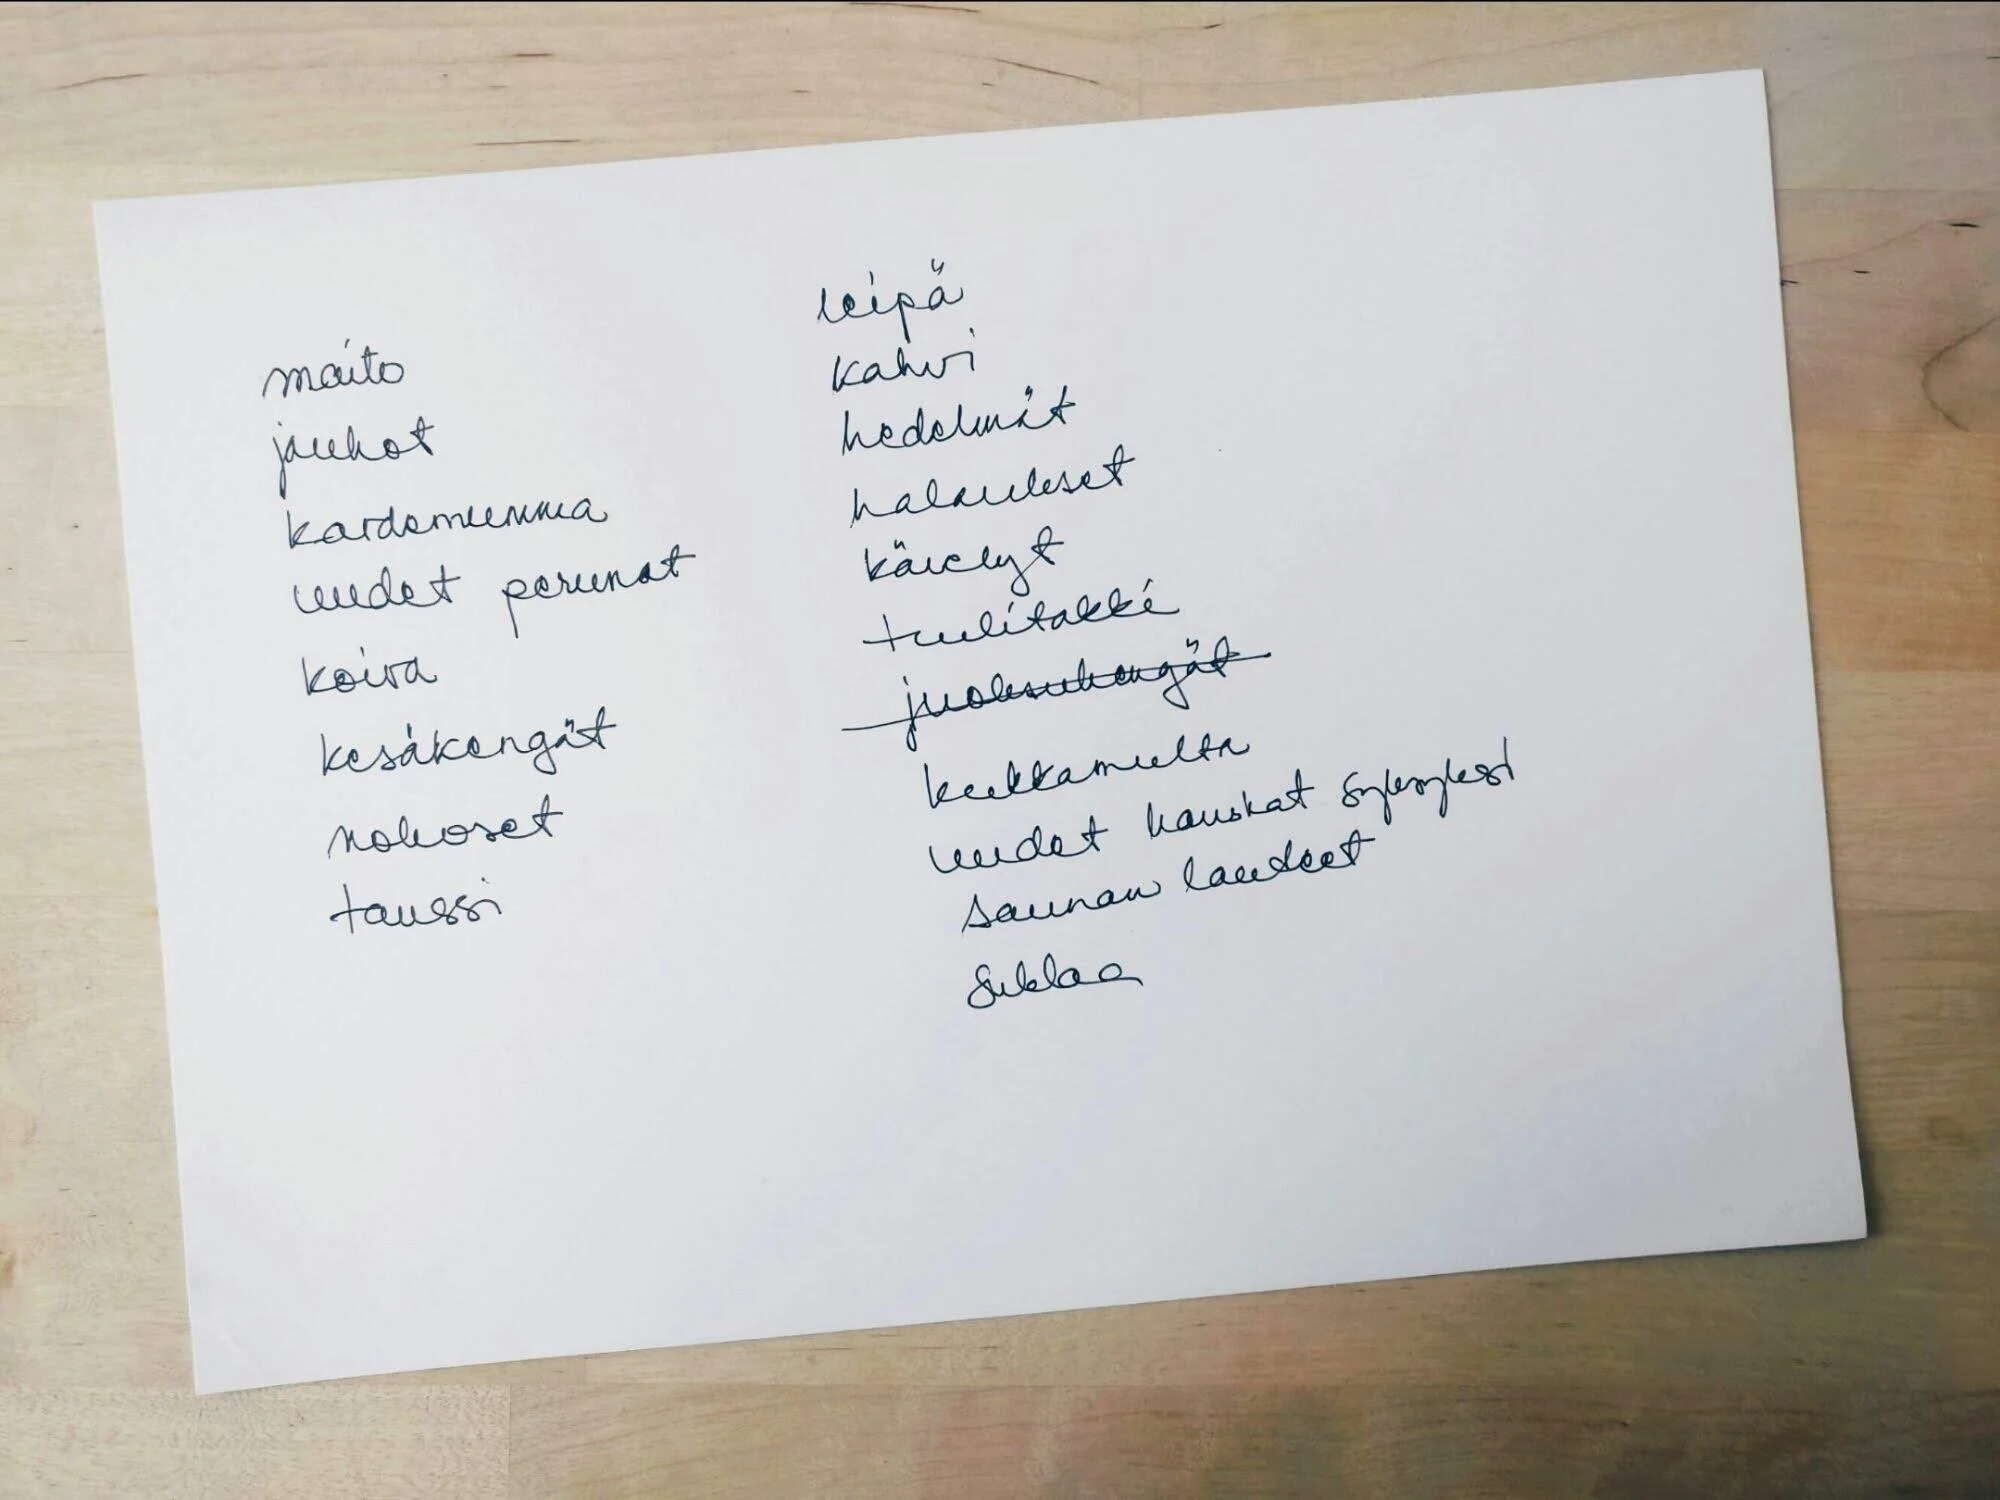 maito
jauhot
kardemumma
uudet perunat
koira
kesäkengät
nokoset
tanssi
leipä
kahvi
hedelmät
halaukset
kävelyt
tuulitakki
juoksukengät
kukkamulta
uudet hauskat syksyksi
saunan lauteet
suklaa